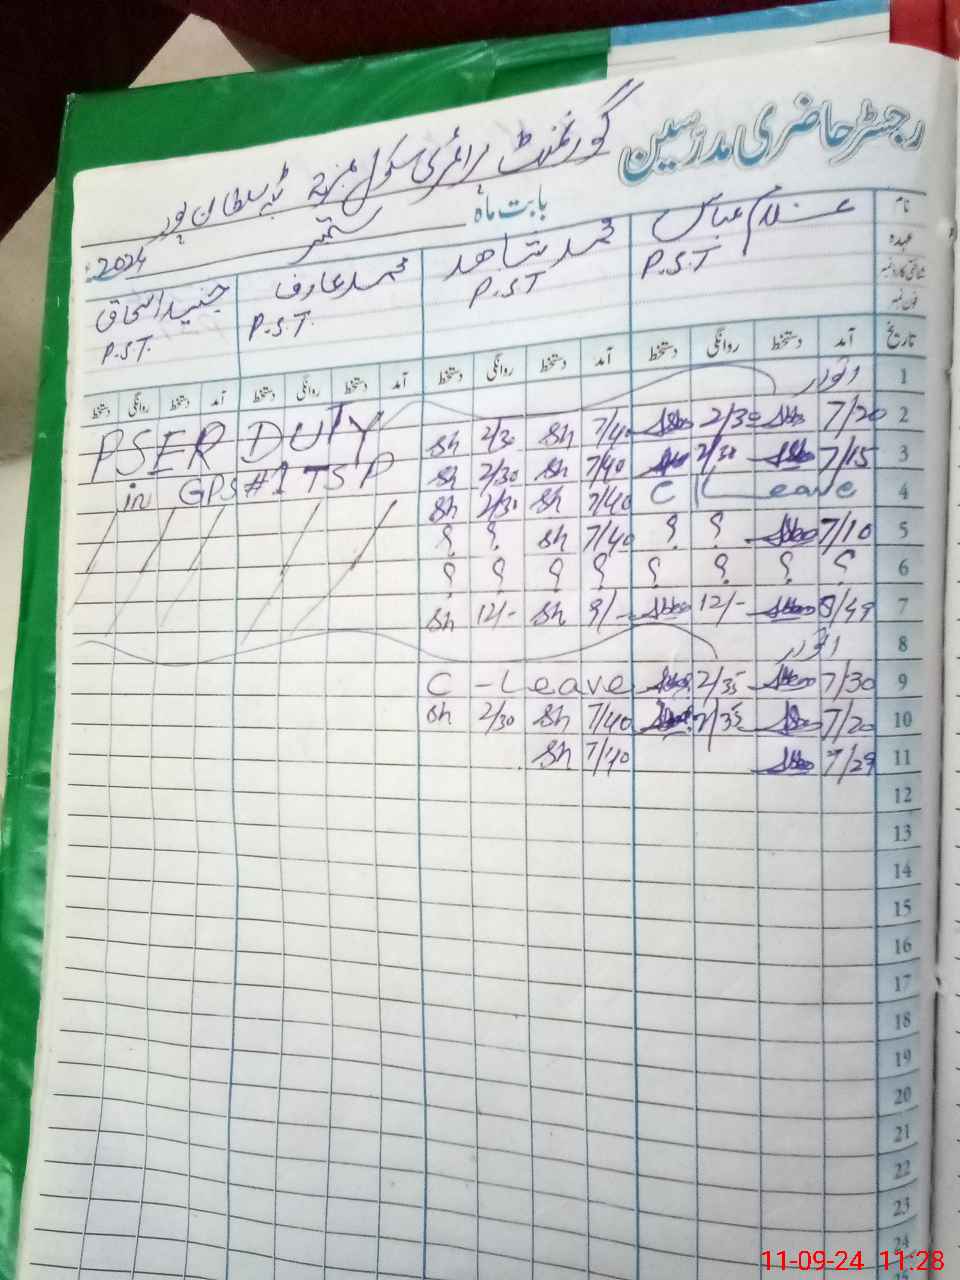 رجسٹر حاضری مدرسین گورنمنٹ پرائمری سکول نمبر 2 ٹبہ سلطان پور
بابت ماہ ستمبر 2024
نام غلام عباس محمد شاہد محمد عارف جنید اسحاق
عہدہ P.S.T P.S.T P.S.T. P.S.T.
شناختی کارڈ نمبر
فون نمبر
تاریخ آمد دستخط روانگی دستخط آمد دستخط روانگی دستخط آمد دستخط روانگی دستخط آمد دستخط روانگی دستخط
1 اتوار
2 7/20 2/30 7/40 Sh 2/30 Sh PSER DUTY
3 7/15 2/30 7/40 Sh 2/30 Sh in GPS #1 TSP
4 C Leave 7/40 Sh 2/30 Sh
5 7/10 ؟ ؟ 7/40 Sh ؟ ؟
6 ؟ ؟ ؟ ؟ ؟ ؟ ؟ ؟
7 8/49 12/- 9/- Sh 12/- Sh
8 اتوار
9 7/30 2/35 C - Leave
10 7/20 2/35 7/40 Sh 2/30 Sh
11 7/29 7/40 Sh
12
13
14
15
16
17
18
19
20
21
22
23
24
11-09-24 11:28